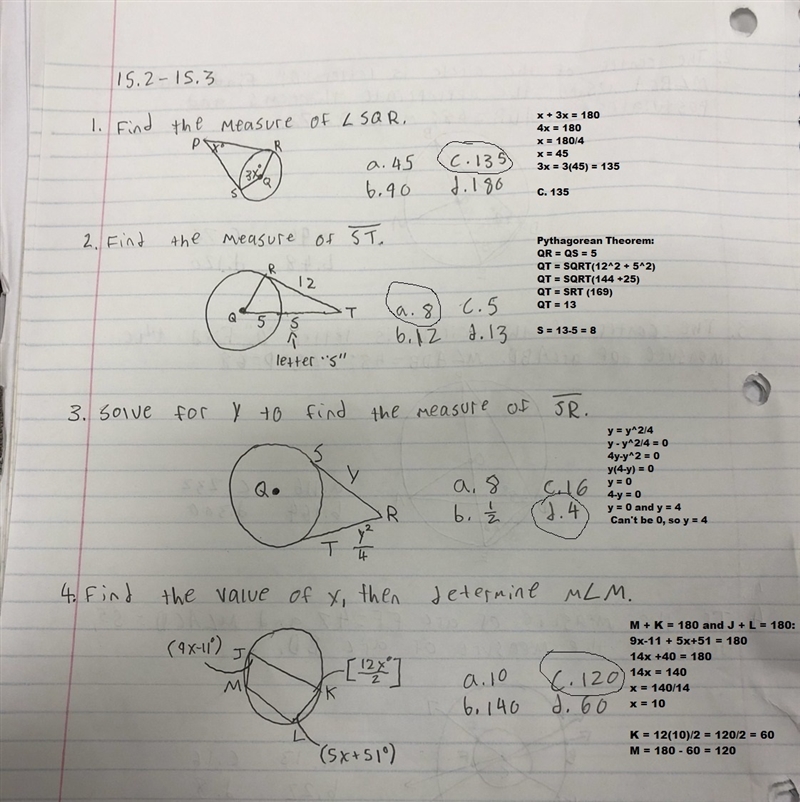 15.2-15.3
1. Find the measure of ∠SQR.
P
x°
R
3x°
Q
S
a. 45
c. 135
b. 90
d. 180
x + 3x = 180
4x = 180
x = 180/4
x = 45
3x = 3(45) = 135
C. 135
2. Find the measure of ST.
R
12
Q
5
S
T
letter "S"
a. 8
c. 5
b. 12
d. 13
Pythagorean Theorem:
QR = QS = 5
QT = SQRT(12^2 + 5^2)
QT = SQRT(144 +25)
QT = SRT (169)
QT = 13
S = 13-5 = 8
3. Solve for y to find the measure of SR.
S
y
Q
R
T
y²/4
a. 8
c. 16
b. 1/2
d. 4
y = y^2/4
y - y^2/4 = 0
4y-y^2 = 0
y(4-y) = 0
y = 0
4-y = 0
y = 0 and y = 4
Can't be 0, so y = 4
4. Find the value of x, then determine m∠M.
(9x-11°)
J
M
K
[12x°/2]
L
(5x+51°)
a. 10
c. 120
b. 140
d. 60
M + K = 180 and J + L = 180:
9x-11 + 5x+51 = 180
14x +40 = 180
14x = 140
x = 140/14
x = 10
K = 12(10)/2 = 120/2 = 60
M = 180 - 60 = 120